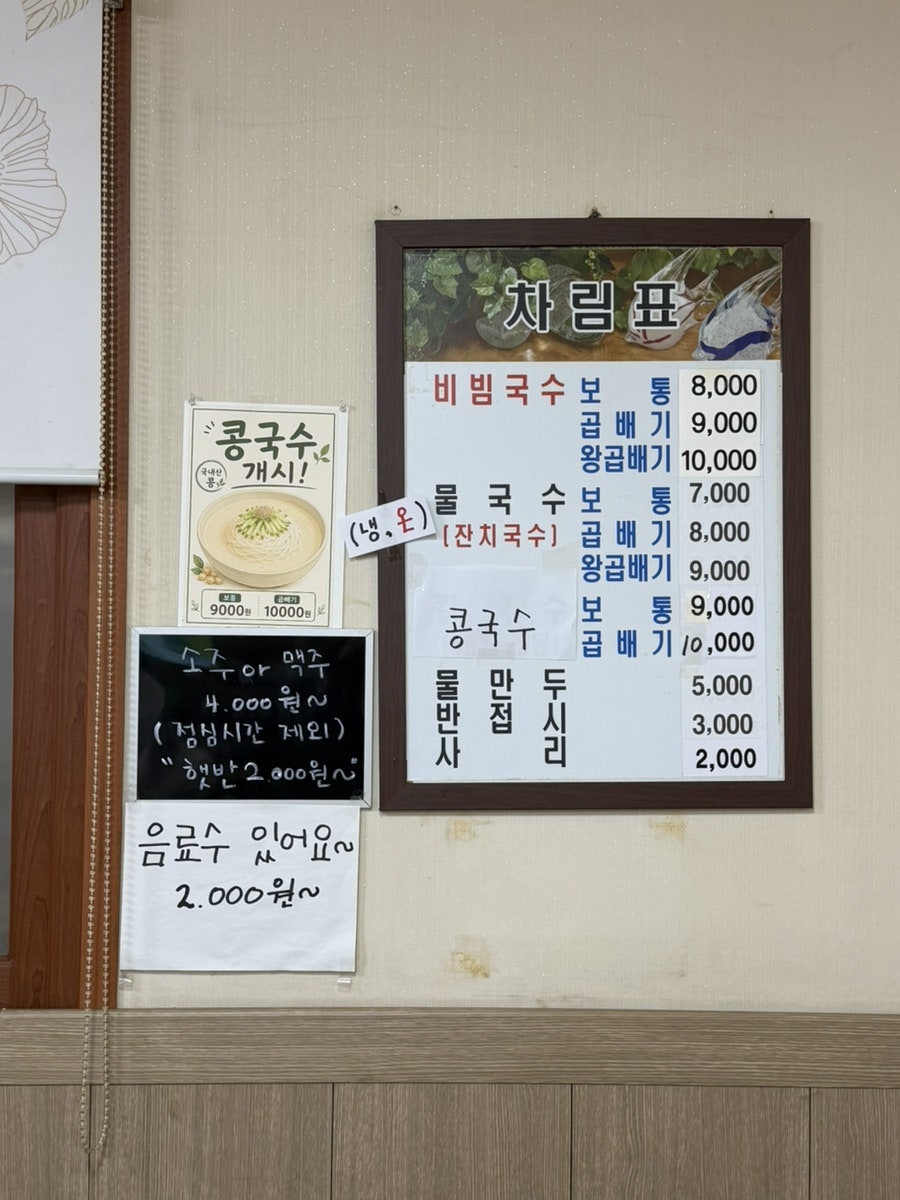 콩국수
개시!
국내산
콩
보통
9000원
곱배기
10000원
소주 or 맥주
4.000원~
(점심시간 제외)
"햇반 2.000원~"
음료수 있어요~
2.000원~
차림표
비빔국수 보통 8,000
곱배기 9,000
왕곱배기 10,000
(냉, 온)
물국수 보통 7,000
(잔치국수) 곱배기 8,000
왕곱배기 9,000
콩국수 보통 9,000
곱배기 10,000
물만두 5,000
반접시 3,000
사리 2,000